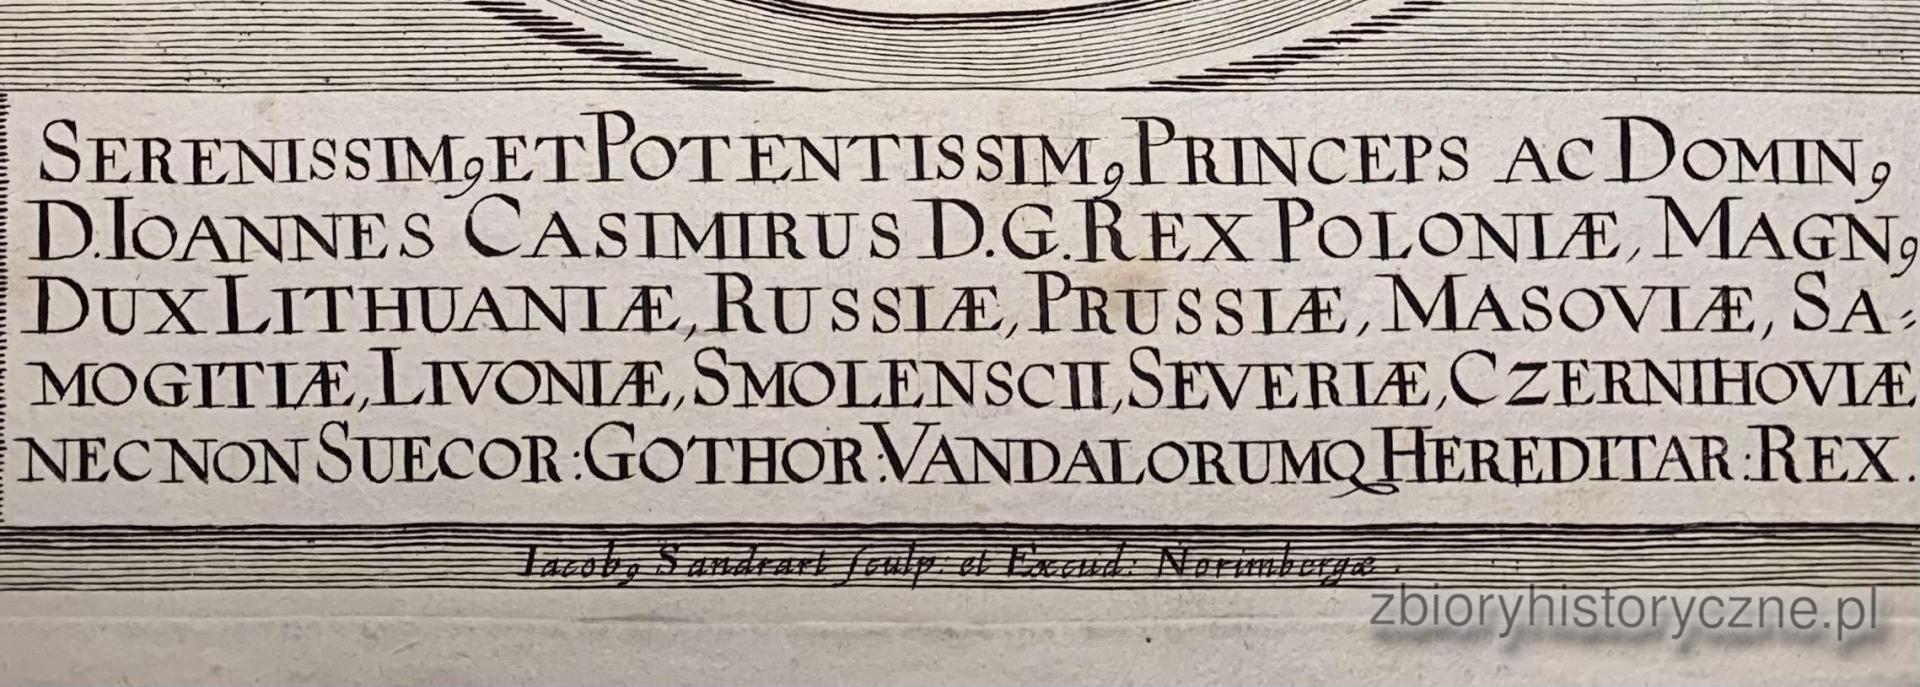 SERENISSIMꝰ ET POTENTISSIMꝰ PRINCEPS AC DOMINꝰ
D. IOANNES CASIMIRUS D.G. REX POLONIÆ, MAGNꝰ
DUX LITHUANIÆ, RUSSIÆ, PRUSSIÆ, MASOVIÆ, SA⸗
MOGITIÆ, LIVONIÆ, SMOLENSCII, SEVERIÆ, CZERNIHOVIÆ
NEC NON SUECOR: GOTHOR: VANDALORUMQ HEREDITAR: REX.
Iacobꝰ Sandrart sculp: et Excud: Norimbergæ.
zbioryhistoryczne.pl